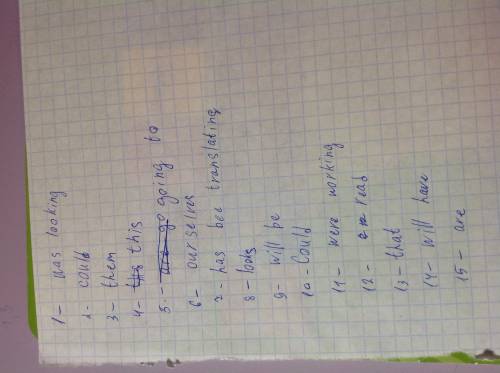 1- was looking
2- could
3- them
4- this
5- going to
6- ourselves
7- has bee translating
8- looks
9- will be
10- Could
11- were working
12- read
13- that
14- will have
15- are